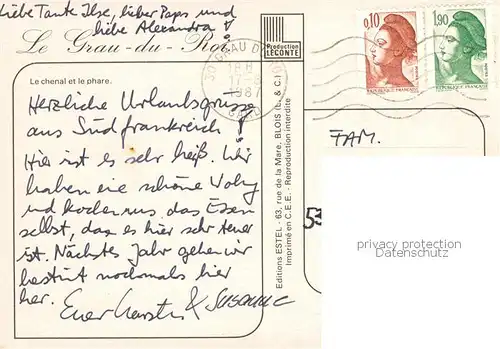 Liebe Tante Ilse, lieber Paps und
liebe Alexandra!
Le Grau-du-Roi
Le chenal et le phare.
Herzliche Urlaubsgrüsse
aus Südfrankreich!
Hier ist es sehr heiß. Wir
haben eine schöne Wohg
und kochen uns das Essen
selbst, da es hier sehr teuer
ist. Nächstes Jahr gehen wir
bestimt nochmals hier
her.
Euer Karsten & Susanne
Production
LECONTE
Editions ESTEL - 63, rue de la Mare, BLOIS (L. & C.)
Imprimé en C.E.E. - Reproduction interdite
30 GRAU D
18 H
1987
GARD
0,10
REPUBLIQUE FRANÇAISE
1,90
REPUBLIQUE FRANÇAISE
FAM.
privacy protection
Datenschutz